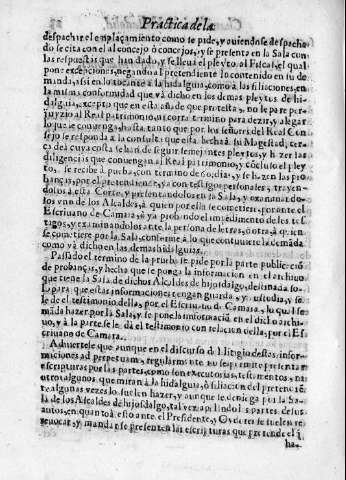 Práctica de la
despachar el emplaçamiento como se pide, y auiendose despacha
do se cita con el al concejo, ò concejos, y se presenta en la Sala con
las respuestas que han dado, y se lleua el pleyto al Fiscal, el qual
pone excepciones, negando al pretendiente lo contenido en su de
manda, assi en lo tocante à la hidalguia, como à las filiaciones, en
la misma conformidad que và dicho en los demas pleytos de hi-
dalguia, excepto que en esta año de que protesta, no le pare per-
juyzio al Real patrimonio, ni corra termino para dezir, y alegar
lo que le conuenga, hasta tanto que por los señores del Real Con-
sejo se responda à la consulta que esta hecha à su Magestad, cer-
ca de à cuya costa se han de seguir semejantes pleytos, y hazer las
diligencias que conuengan al Real patrimonio, y concluso el pley-
to, se recibe à prueba, con termino de 60. dias, y se hazen las pro
banças, por el pretendiente, ya con testigos personales, trayen-
dolos à esta Corte, y presentandolos en la Sala, y examinando
los vno de los Alcaldes, à quien por ella se cometiere, por ante el
Escriuano de Camara, ò ya probando el impedimento de los tes-
tigos, y examinandolos ante la persona de letras, ò otra, à quien
se cometiere por la Sala, conforme à lo que contuuiere la demãda
como và dicho en las demas hidalguias.
Passado el termino de la prueba se pide por la parte publicaciõ
de probanças, y hecha que se ponga la informacion en el archiuo
que tiene la Sala de dichos Alcaldes de hijosdalgo, destinado so-
lo para que estas informaciones tengan guarda, y custodia, y se
le de el testimonio della, por el Escriuano de Camara, lo qual se
manda hazer por la Sala, y se pone la informacion en el dicho archi-
uo, y à la parte se le dà el testimonio con relacion della, por el Es-
criuano de Camara.
Aduiertese que aunque en el discurso del litigio destas infor-
maciones ad perpetuam, regularmente no se permite presentar
escripturas por las partes, como son executorias, testamentos, ni
otros algunos que miran à la hidalguia, ò filiacion del pretendiẽte
algunas vezes lo suelen hazer, y aunque se deniega por la Sa-
la de los Alcaldes de hijosdalgo, tal vez apelando las partes de sus
autos, en quanto à esto ante el Presidente, y Oydores se suelen re-
uocar, y mandan se presenten las escripturas que pretende el q̃
ha-